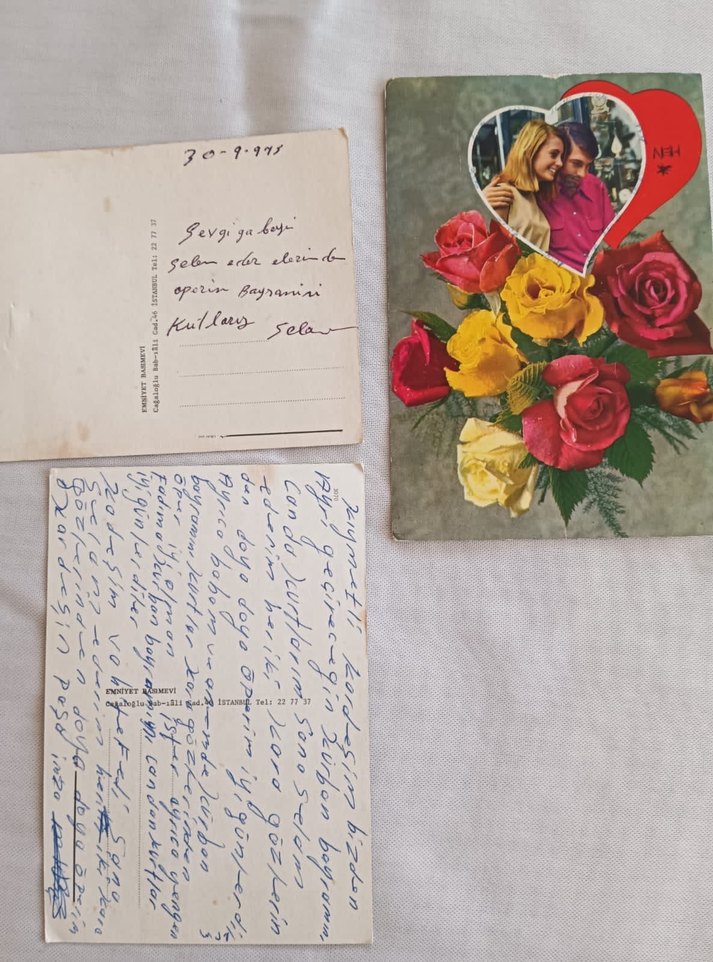 30-9-975
Sevgi ga beyi
Selam eder elerinden
operim Bayraminizi
Kutlarız Selam
EMNİYET BASIMEVİ
Cağaloğlu Bab-ıâli Cad.46 İSTANBUL Tel: 22 77 37
HEN
kıymetli kardeşim bizden
Ayrı geçireceğin kurban bayramını
Candan kutlarım sana selam
ederim heriki kara gözlerin
den doya doya öperim iyi günler di
Ayrıca babam ve annemde kurban
bayramını kutlar kara gözlerinden
öper iyi olman ister ayrıca yengen
Fadima kurban bayramın candan kutlar
iyi günler diler
kardeşim vahtetdi sana
Selam ederim her iki kara
gözlerinden doya doya öperim
kardeşin paşa imza
EMNİYET BASIMEVİ
Cağaloğlu Bab-ıâli Cad. İSTANBUL Tel: 22 77 37